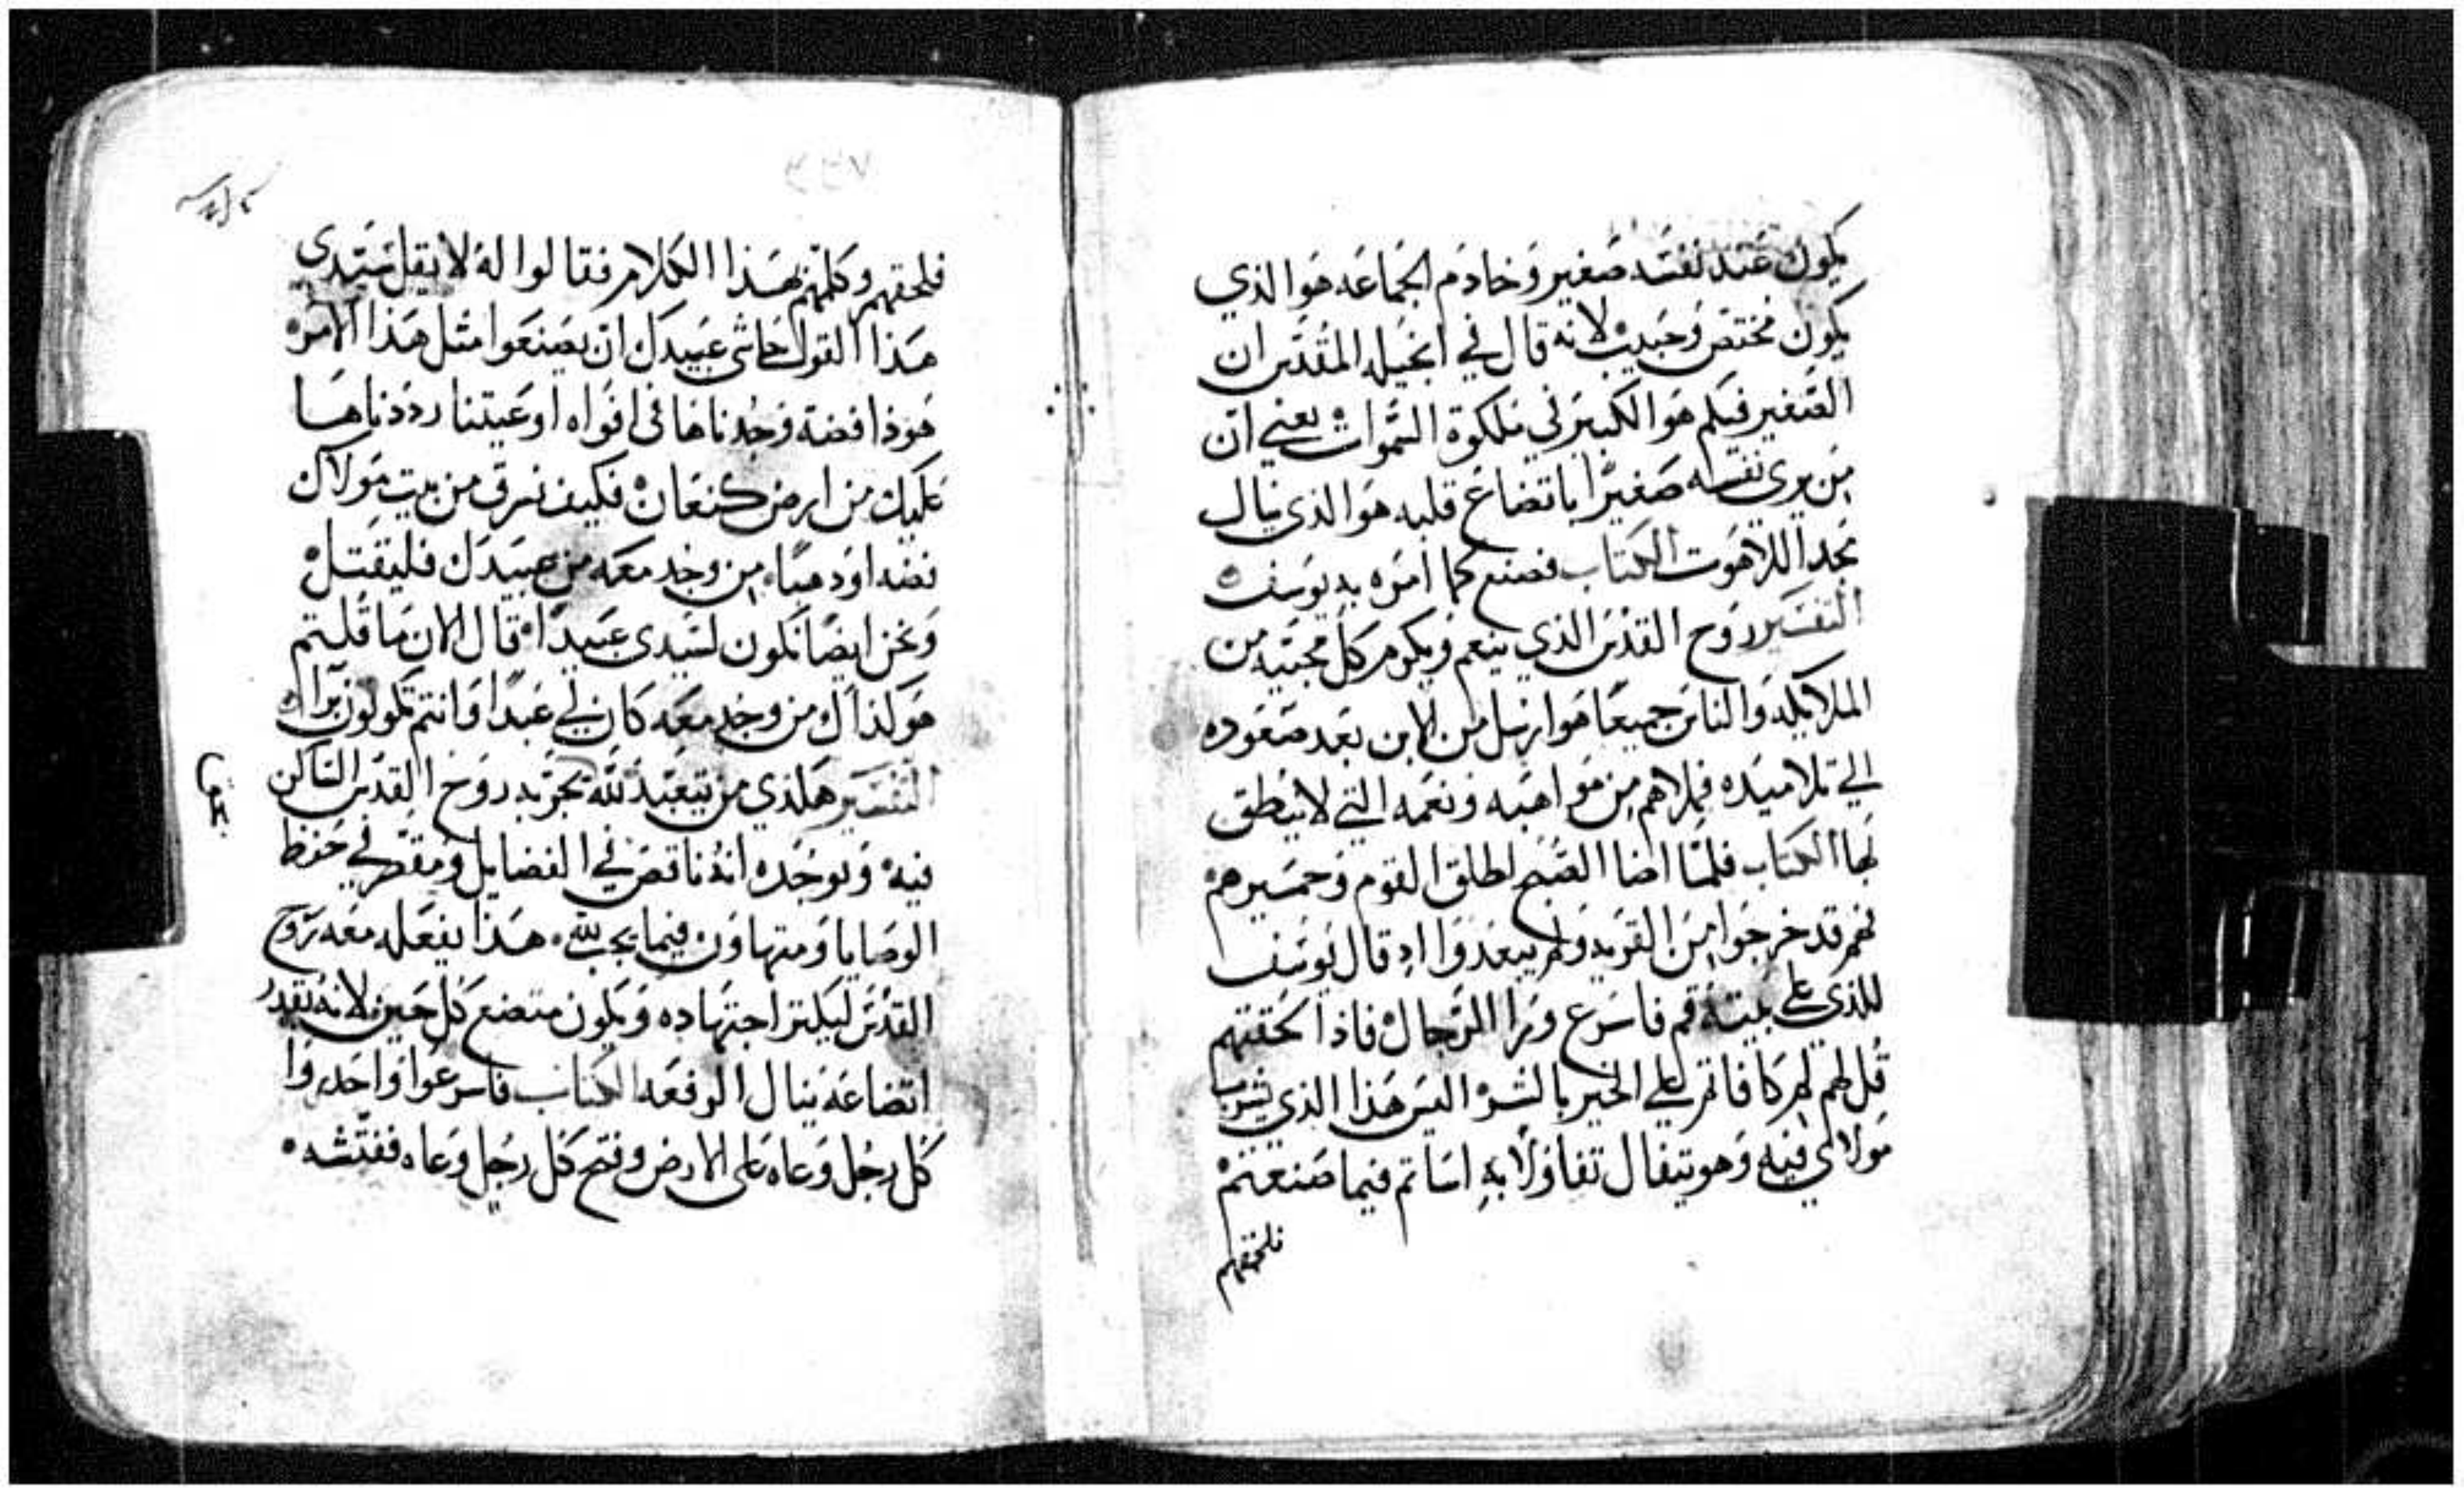 يكون عند نفسه صغير وخادم الجماعه هو الذي
يكون مختص وحبيب لانه قال في انجيله المقدس ان
الصغير فيكم هو الكبير في ملكوة السموات يعني ان
من يرى نفسه صغيرا باتضاع قلبه هو الذي ينال
مجد اللاهوت الكتاب فصنع كما امره به يوسف
التفسير روح القدس الذي ينعم ويكرم كل محبيه من
الملايكه والناس جميعا هو ارسل من الابن بعد صعوده
الي تلاميده فملاهم من مواهبه ونعمه التي لا ينطق
بها الكتاب فلما اضا الصبح اطلق القوم وحميرهم
فهم قد خرجوا من القريه ولم يبعدوا اد قال يوسف
للذي علي بيته قم فاسرع ورا الرجال فاذا لحقتهم
قل لهم لم كافاتم علي الخير بالشر اليس هذا الذي يشرب
مولاي فيه وهو يتفال تفاولا به اساتم فيما صنعتم
فلحقهم
فلحقهم وكلمهم بهذا الكلام فقالوا له لا يقل سيدي
هذا القول حاشى عبيدك ان يصنعوا مثل هذا الامر
هوذا فضة وجدناها في افواه اوعيتنا رددناها
عليك من ارض كنعان فكيف نسرق من بيت مولاك
فضه او دهبا من وجد معه من عبيدك فليقتل
ونحن ايضا نكون لسيدي عبيدا قال الان ما قلتم
هو كذاك من وجد معه كان لي عبدا وانتم تكونون برا
التفسير هكذي من يتعبد لله تجربه روح القدس الساكن
فيه وتوجده انه ناقص في الفضايل ومقصر في حفظ
الوصايا ومتهاون فيما يجب لله هذا يفعله معه روح
القدس ليكثر اجتهاده ويكون متضع كل حين لانه بقدر
اتضاعه ينال الرفعه الكتاب فاسرعوا واحدروا
كل رجل وعاه على الارض وفتح كل رجل وعاه ففتشه